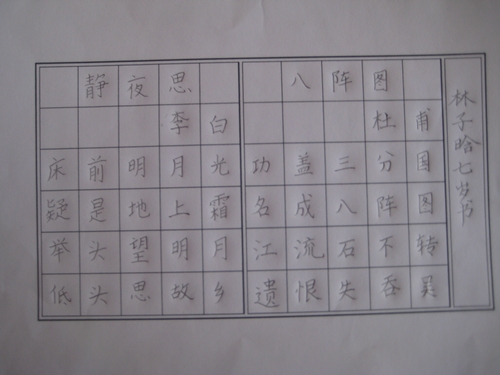 静夜思
李白
床前明月光
疑是地上霜
举头望明月
低头思故乡
八阵图
杜甫
功盖三分国
名成八阵图
江流石不转
遗恨失吞吴
林子晗七岁书